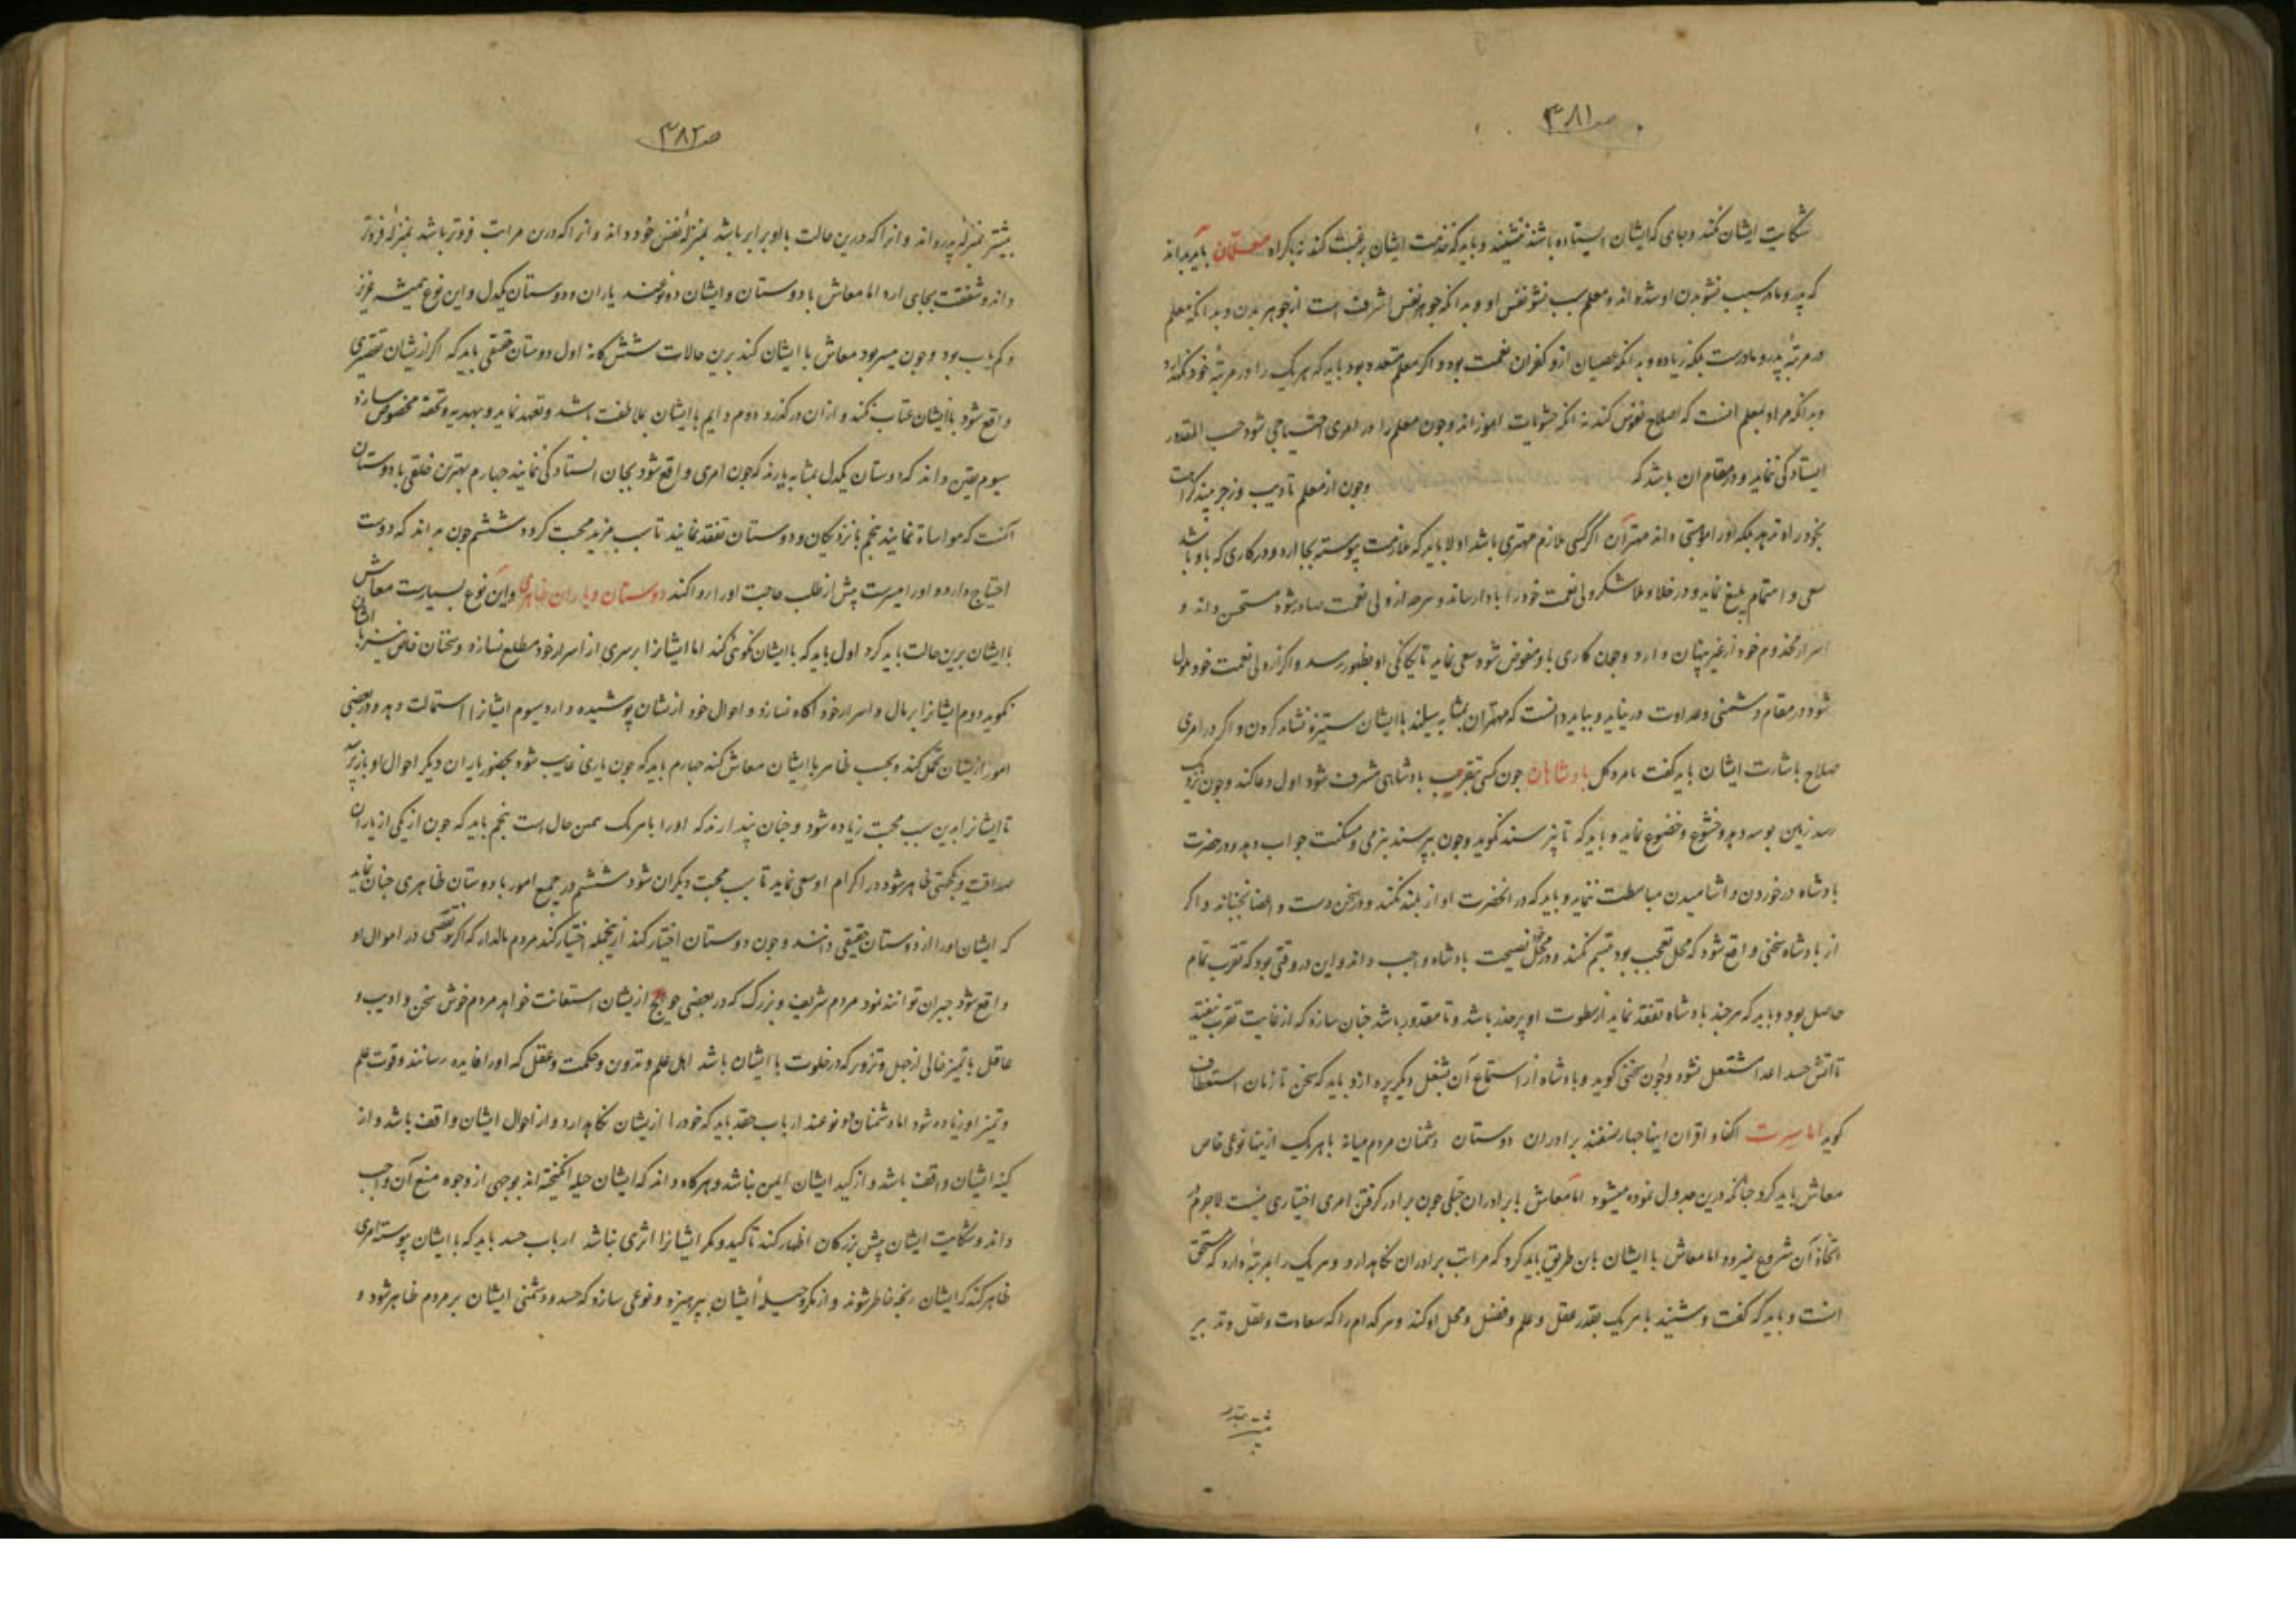 صـ ٣٨١
شکایت ایشان نکند و جای که ایشان ایستاده باشند ننشیند و باید که خدمت ایشان برغبت کند نه باکراه معلمان باید بداند
که پدر و مادر سبب نشو بدن او شده‌اند و معلم سبب نشو نفس او و بدانکه جوهر نفس اشرف است از جوهر بدن و بدانکه معلم
در مرتبهٔ پدر و مادرست بلکه زیاده و بدانکه عصیان ازو کفران نعمت بود و اکر معلم متعدد بود باید که هریک را در مرتبهٔ خود نکهدارد
و بدانکه مراد بمعلم انست که اصلاح نفوس کند نه انکه حشویات اموزاند و چون معلم را در امری احتیاجی شود حسب المقدور
ایستادکی نماید و در مقام ان باشد که وچون از معلم تادیب و زجر بیند کراهت
بخود راه ندهد بلکه انرا موهبتی داند مهتران اکر کسی ملازم مهتری باشد اولا باید که ملازمت پیوسته بجا ارد و در کاری که با او باشد
سعی و اهتمام بلیغ نماید و در خلا و ملا شکر ولی نعمت خود را بادا رساند و هرچه از ولی نعمت صادر شود مستحسن داند و
اسرار مخدوم خود از غیر پنهان دارد وچون کاری باو مفوض شود سعی نماید تا یکانکی او بظهور رسد و اکر از ولی نعمت خود ملول
شود در مقام دشمنی و عداوت در نیاید و بباید دانست که مهتران بمثابه سیلند با ایشان ستیزه نشاید کردن و اکر در امری
صلاح باشارت ایشان باید کفت نامرد کل بادشاهان چون کسی بتقریب بادشاهی مشرف شود اول دعا کند وچون نزدیک
رسد زمین بوسه دهد و خشوع و خضوع نماید و باید که تا نپرسند نکوید وچون بپرسند بنرمی و مسکنت جواب دهد و در حضرت
بادشاه در خوردن و اشامیدن مباسطت ننماید و باید که در انحضرت اواز بلند نکند و در سخن دست و اعضا نجنباند و اکر
از بادشاه سخنی واقع شود که محل تعجب بود تبسم نکند و در محل نصیحت بادشاه واجب داند و این در وقتی بود که تقرب تمام
حاصل بود و باید که هرچند بادشاه تفقد نماید از سطوت او پرحذر باشد و تا مقدور باشد چنان سازد که از غایت تقرب نیفتد
تا آتش حسد اعدا مشتعل نشود وچون سخنی کوید و بادشاه از استماع آن بشغل دیکر پردازد باید که سخن تا زمان استعطاف
کوید اما سیرت اکفا و اقران اینها چهار صنفند برادران دوستان دشمنان مردم میانه با هریک ازینها نوعی خاص
معاش باید کرد چنانکه درین جدول نموده میشود اما معاش با برادران جبلی چون برادر کرفتن امری اختیاری نیست لاجرم در
اتخاذ آن شروع نمیرود اما معاش با ایشان باین طریق باید کرد که مراتب برادران نکاهدارد و هریک را بمرتبهٔ دارد که مستحق
انست و باید که کفت و شنید با هریک بقدر عقل و علم و فضل و محل او کند و هرکدام را که سعادت و عقل و تدبیر
صـ ٣٨٢
بیشتر بمنزلهٔ پدر داند و انرا که درین حالت با او برابر باشد بمنزلهٔ نفس خود داند و انرا که درین مراتب فروتر باشد بمنزلهٔ فرزند
داند و شفقت بجای ارد اما معاش با دوستان و ایشان دو نوعند یاران و دوستان یکدل و این نوع همیشه عزیز
و کم‌یاب بود وچون میسر بود معاش با ایشان کند برین حالات ششکانه اول دوستان حقیقی باید که اکر ازیشان تقصیری
واقع شود با ایشان عتاب نکند و ازان درکذرد دوم دایم با ایشان بملاطفت باشد و تعهد نماید و بهدیه و تحفه مخصوص سازد
سیوم یقین داند که دوستان یکدل بمثابه یارند که چون امری واقع شود بجان ایستادکی نمایند چهارم بهترین خلقی با دوستان
آنست که مواساة نمایند پنجم با نزدیکان و دوستان تفقد نمایند تا سبب مزید محبت کردد ششم چون بداند که دوست
احتیاج دارد و اورا میسرست پیش از طلب حاجت اورا روا کند دوستان و یاران ظاهری و این نوع بسیارست معاش
با ایشان برین حالت باید کرد اول باید که با ایشان نکوئی کند اما ایشانرا بر سری از اسرار خود مطلع نسازد و سخنان خاص نیز با ایشان
نکوید دوم ایشانرا بر مال و اسرار خود آکاه نسازد و احوال خود ازیشان پوشیده دارد سیوم ایشانرا استمالت دهد و در بعضی
امور ازیشان تحمل کند و بحسب ظاهر با ایشان معاش کند چهارم باید که چون یاری غایب شود بحضور یاران دیکر احوال او باز پرسد
تا ایشانرا بدین سبب محبت زیاده شود و چنان پندارند که اورا با هریک همین حال است پنجم باید که چون از یکی از یاران
صداقت و یکجهتی ظاهر شود در اکرام او سعی نماید تا سبب محبت دیکران شود ششم در جمیع امور با دوستان ظاهری چنان نماید
که ایشان اورا از دوستان حقیقی دانند وچون دوستان اختیار کند ازینجمله اختیار کند مردم مالدار که اکر نقصی در اموال او
واقع شود جبران توانند نمود مردم شریف و بزرک که در بعضی حوایج ازیشان استعانت خواهد مردم خوش سخن و ادیب و
عاقل با تمیز خالی از جهل و تزویر که در خلوت با ایشان باشد اهل علم و تدوین و حکمت و عقل که اورا فایده رسانند و قوت علم
و تمیز او زیاده شود اما دشمنان دو نوعند ارباب حقد باید که خود را ازیشان نکاهدارد و از احوال ایشان واقف باشد و از
کینه ایشان واقف باشد و از کید ایشان ایمن نباشد و هرکاه داند که ایشان حیله انکیخته‌اند بوجهی از وجوه منع آن واجب
داند و شکایت ایشان پیش بزرکان اظهار کند تا کید و مکر ایشانرا اثری نباشد ارباب حسد باید که با ایشان پیوسته امری
ظاهر کند که ایشان رنجه خاطر شوند و از مکر و حیلهٔ ایشان بپرهیزد و نوعی سازد که حسد و دشمنی ایشان بر مردم ظاهر شود و